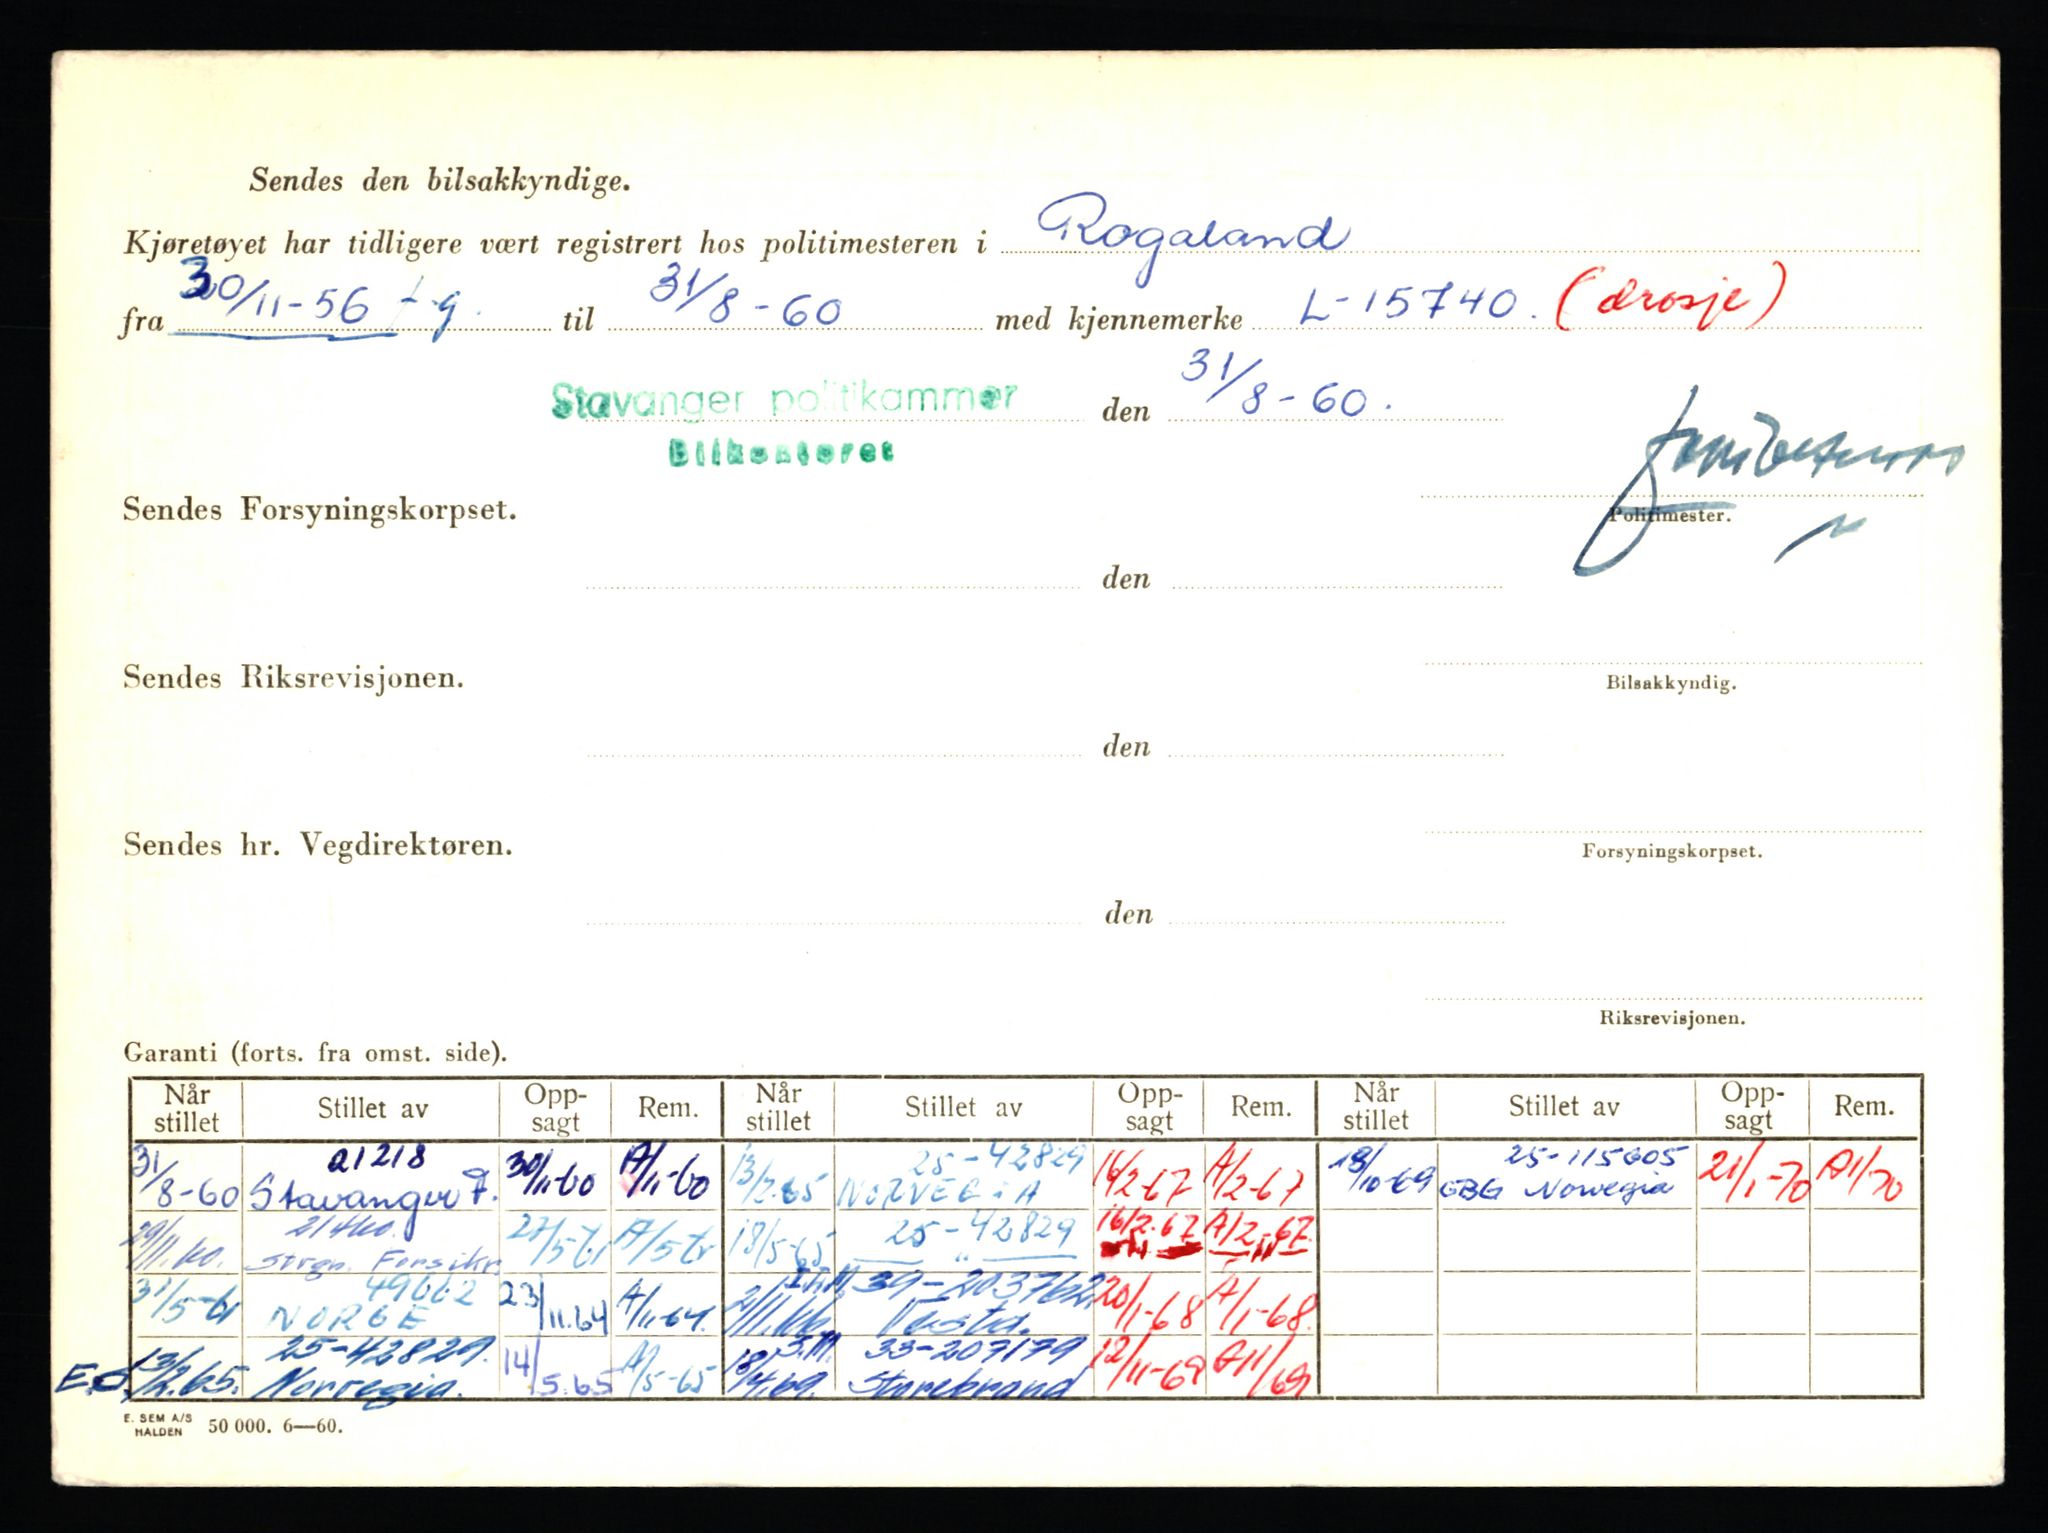 Sendes den bilsakkyndige.
Kjøretøyet har tidligere vært registrert hos politimesteren i Rogaland
fra 30/11-56 til 31/8-60 med kjennemerke L-15740. (drosje)
Stavanger politikammer den 31/8-60.
Bilkontoret
Sendes Forsyningskorpset.
Politimester.
den
Sendes Riksrevisjonen.
Bilsakkyndig.
den
Sendes hr. Vegdirektøren.
Forsyningskorpset.
den
Riksrevisjonen.
Garanti (forts. fra omst. side).
Når stillet Stillet av Opp-sagt Rem. Når stillet Stillet av Opp-sagt Rem. Når stillet Stillet av Opp-sagt Rem.
31/8-60 21218 Stavanger F. 30/11-60 A/11-60 13/2.65 25-42829 NORVEGIA 16/2-67 A/2-67 13/10-69 25-115605 GBG Norvegia 21/1-70 A1/70
29/11.60. Strgn. Forsikr. 27/5-61 A/5-61 18/5-65 25-42829 " 16/2.67 A/2-67
31/5-61 49662 NORGE 23/11.64 A/11-64. 2/11.66 39-203762. Vestd. 20/1-68 A/1-68.
13/2.65. 25-42829. Norvegia. 14/5.65 A/5-65 18/4.69. S.M. 33-207179 Storebrand 12/11-69 A11/69
E. SEM A/S HALDEN 50 000. 6—60.